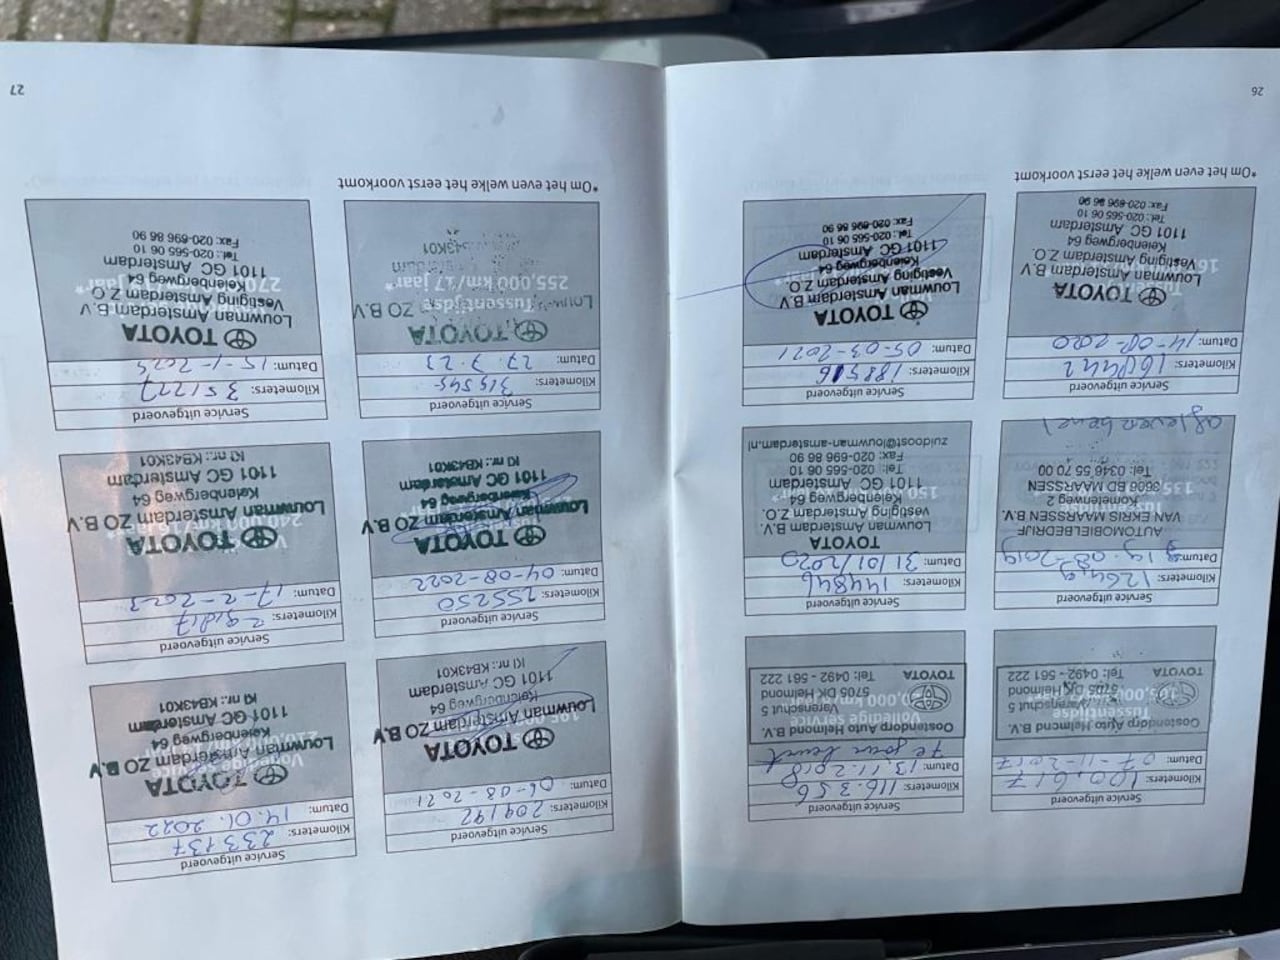 Service uitgevoerd
Kilometers: 100.617
Datum: 07-11-2017
Oostendorp Auto Helmond B.V.
Varenschut 5
5705 DK Helmond
Tel: 0492 - 561 222
TOYOTA
Service uitgevoerd
Kilometers: 116.356
Datum: 13.11.2018
7e jaar beurt
Oostendorp Auto Helmond B.V.
Varenschut 5
5705 DK Helmond
TOYOTA Tel: 0492- 561 222
Service uitgevoerd
Kilometers:
Datum: 19-08-2019
AUTOMOBIELBEDRIJF
VAN EKRIS MAARSSEN B.V.
Kometenweg 2
3606 BD MAARSSEN
Tel: 0346 55 70 00
Service uitgevoerd
Kilometers: 144846
Datum: 31/01/2020
TOYOTA
Louwman Amsterdam B.V.
Vestiging Amsterdam Z.O.
Kelenbergweg 64
1101 GC Amsterdam
Tel.: 020-565 06 10
Fax: 020-696 86 90
zuidoost@louwman-amsterdam.nl
Service uitgevoerd
Kilometers:
Datum: 14-08-2020
TOYOTA
Louwman Amsterdam B.V
Vestiging Amsterdam Z.O.
Kelenbergweg 64
1101 GC Amsterdam
Tel.: 020-565 06 10
Fax: 020-696 86 90
Service uitgevoerd
Kilometers: 188516
Datum: 05-03-2021
TOYOTA
Louwman Amsterdam B.V
Vestiging Amsterdam Z.O.
Kelenbergweg 64
1101 GC Amsterdam
Tel.: 020-565 06 10
Fax: 020-696 86 90
*Om het even welke het eerst voorkomt
26
Service uitgevoerd
Kilometers: 209192
Datum: 06-08-2021
TOYOTA
Louwman Amsterdam ZO B.V
Kelenbergweg 64
1101 GC Amsterdam
KI nr.: KB43K01
Service uitgevoerd
Kilometers: 233737
Datum: 14.01.2022
TOYOTA
Louwman Amsterdam ZO B.V
Kelenbergweg 64
1101 GC Amsterdam
KI nr.: KB43K01
Service uitgevoerd
Kilometers: 255250
Datum: 04-08-2022
TOYOTA
Louwman Amsterdam ZO B.V
Kelenbergweg 64
1101 GC Amsterdam
KI nr.: KB43K01
Service uitgevoerd
Kilometers:
Datum: 17-2-2023
TOYOTA
Louwman Amsterdam ZO B.V
Kelenbergweg 64
1101 GC Amsterdam
KI nr.: KB43K01
Service uitgevoerd
Kilometers: 315545
Datum: 27.7.23
TOYOTA
ZO B.V
Tussentijdse
255,000 km/17 jaar*
Service uitgevoerd
Kilometers: 351227
Datum:
TOYOTA
Louwman Amsterdam B.V
Vestiging Amsterdam Z.O.
Kelenbergweg 64
1101 GC Amsterdam
Tel.: 020-565 06 10
Fax: 020-696 86 90
*Om het even welke het eerst voorkomt
27